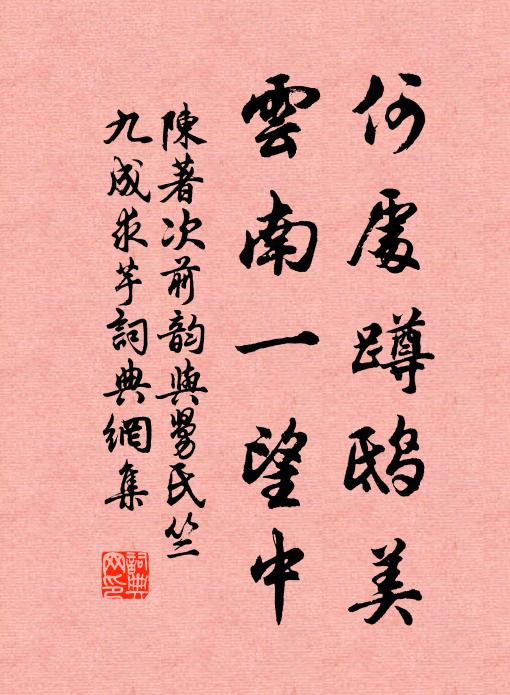 何處蹲鴟美
雲南一望中
陳著次前韵與勞氏竺
九成求芋詞典網集
詞典
网印